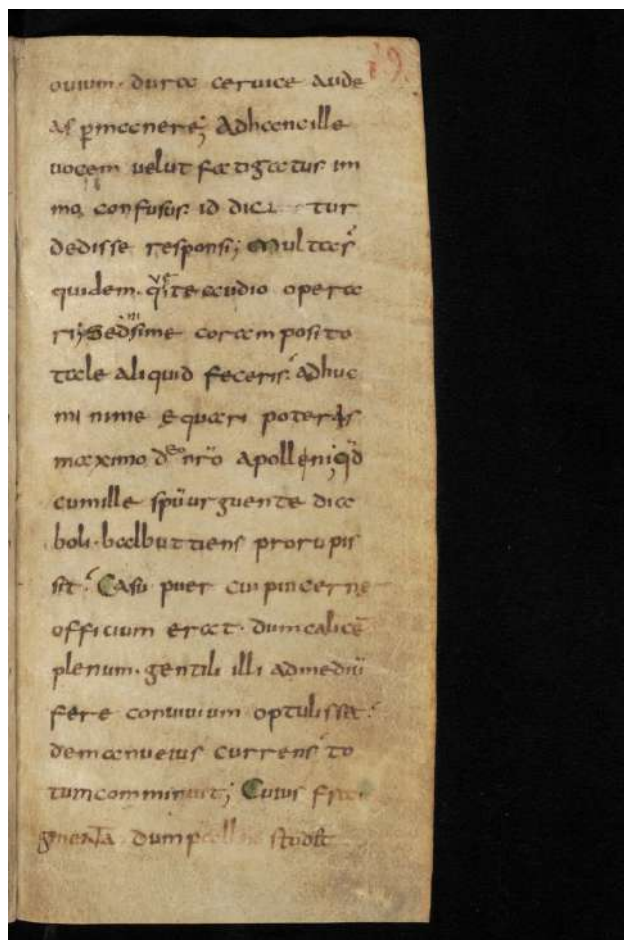 ouium. dura ceruice aude
as p̄manere; Adhancille
uocem uelut fatigatus im
mo, confusus. id
dedisse responsi; Multas
quidem. te audio opera
coram posito
tale aliquid feceris. adhuc
minime equari poteras
maximo dō nr̄o apolleni; qd̄
cumille sp̄u urguente dia
boli. balbuttiens prorupis
sit. Casu puer cui pincerne
officium erat. dum calicē
plenum. gentili illi admediū
fere conuiuium optulisset.
demanueius currens to
tumcomminuit; Cuius
dum studet